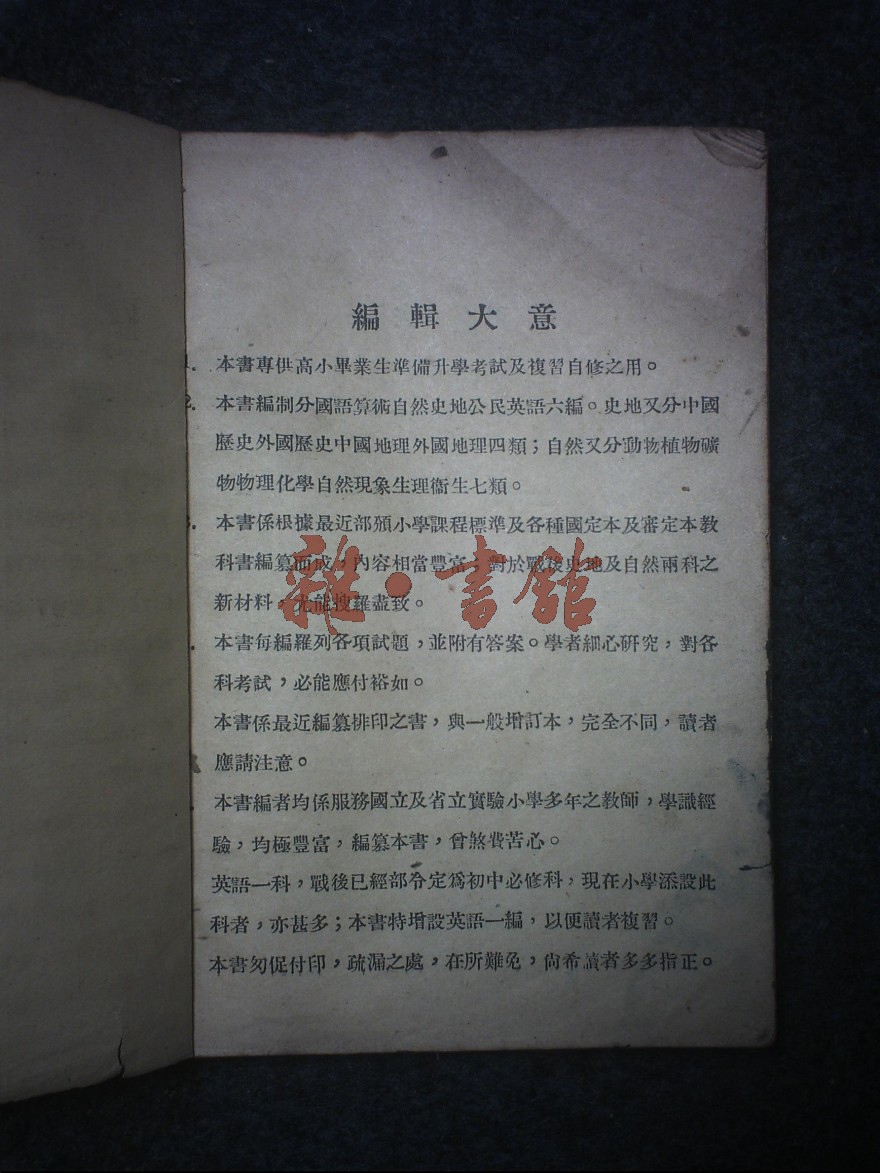 編輯大意
1. 本書專供高小畢業生準備升學考試及複習自修之用。
2. 本書編制分國語算術自然史地公民英語六編。史地又分中國
歷史外國歷史中國地理外國地理四類；自然又分動物植物礦
物物理化學自然現象生理衞生七類。
3. 本書係根據最近部頒小學課程標準及各種國定本及審定本教
科書編纂而成，內容相當豐富，對於戰後史地及自然兩科之
新材料，尤能搜羅盡致。
雜·書館
本書每編羅列各項試題，並附有答案。學者細心研究，對各
科考試，必能應付裕如。
本書係最近編纂排印之書，與一般增訂本，完全不同，讀者
應請注意。
本書編者均係服務國立及省立實驗小學多年之教師，學識經
驗，均極豐富，編纂本書，曾煞費苦心。
英語一科，戰後已經部令定爲初中必修科，現在小學添設此
科者，亦甚多；本書特增設英語一編，以便讀者複習。
本書匆促付印，疏漏之處，在所難免，尙希讀者多多指正。